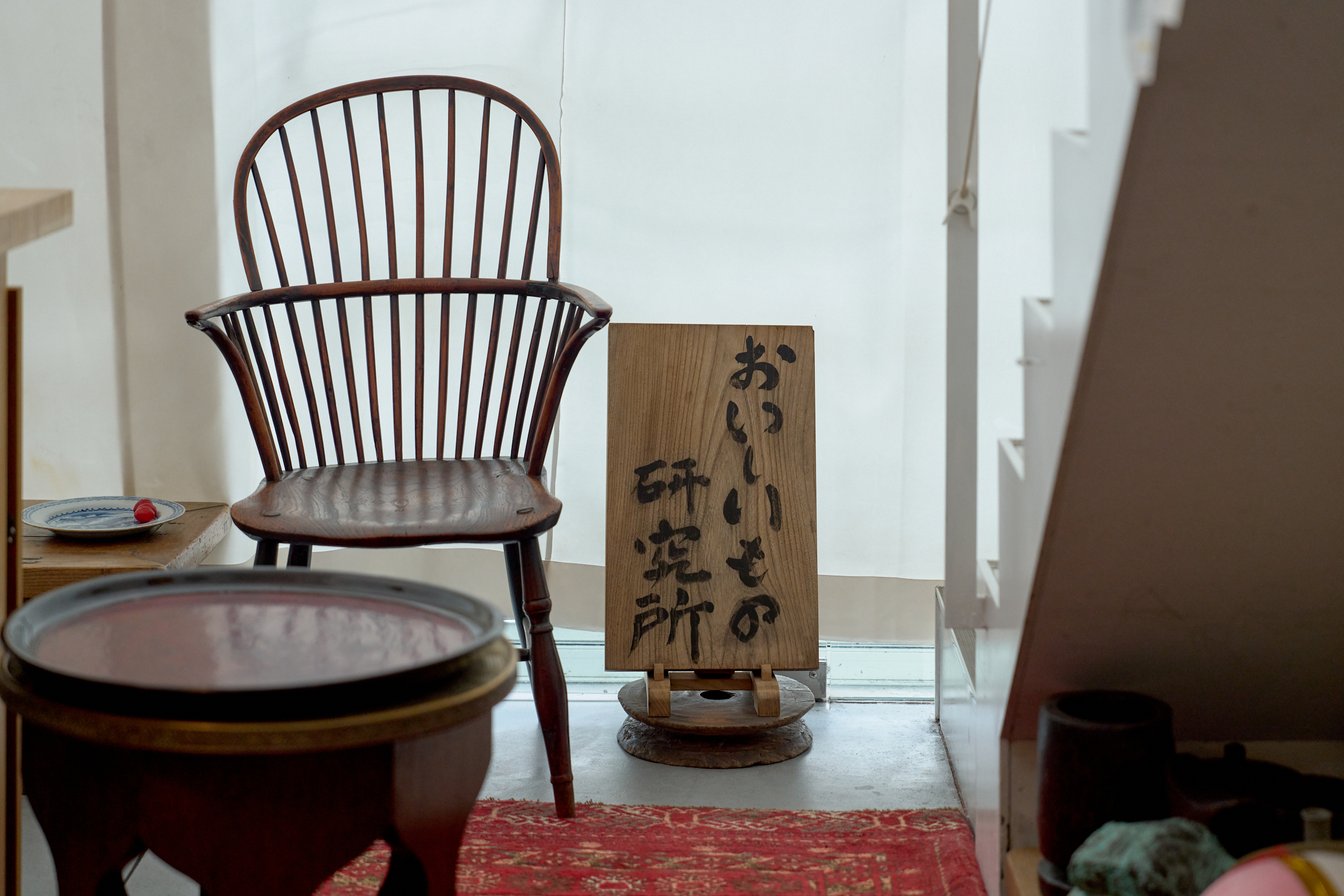 おいしいもの
研究所